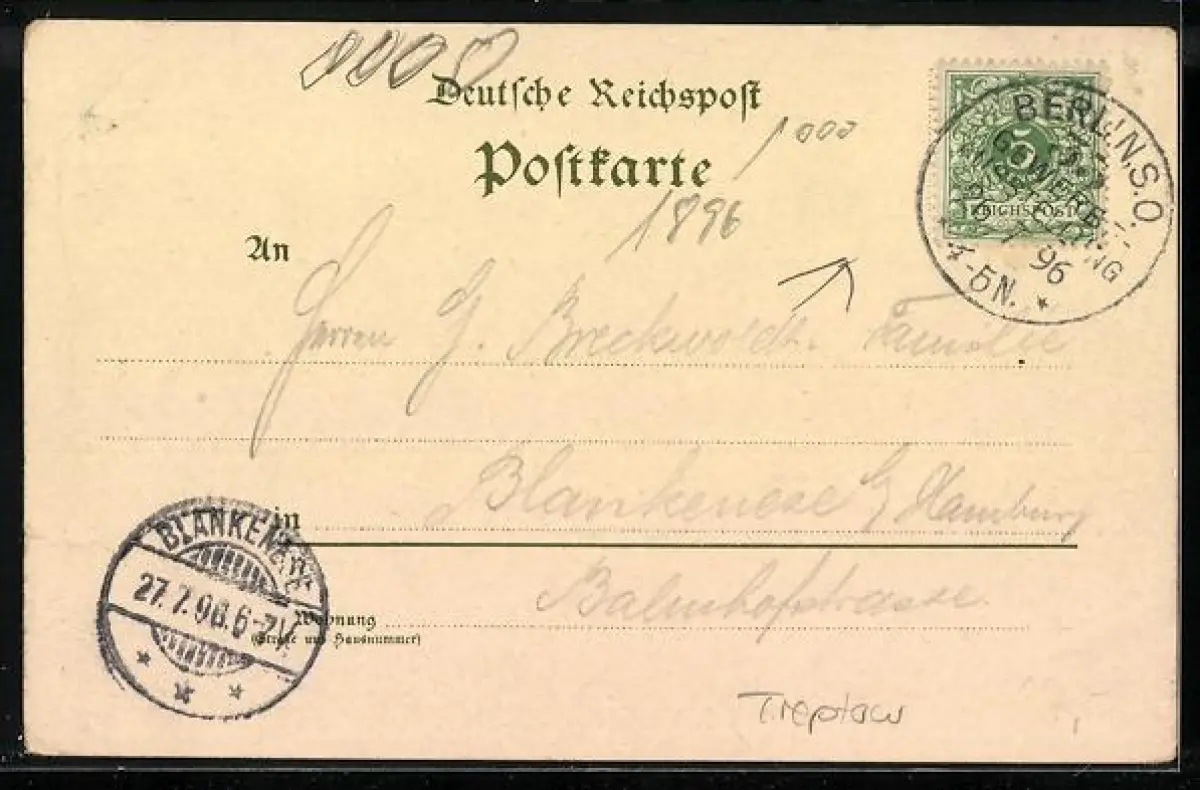 0000
Deutsche Reichspost
Postkarte
1000
1896
5
REICHSPOST
BERLIN.S.O.
GEWERBE-
AUSSTELLUNG
96
4-5N.
An
Herren G. Breckwoldt. Familie
Blankenese b/ Hamburg
in
Bahnhofstrasse
Wohnung
(Straße und Hausnummer)
BLANKENESE
27.7.96.6-7V.
Treptow